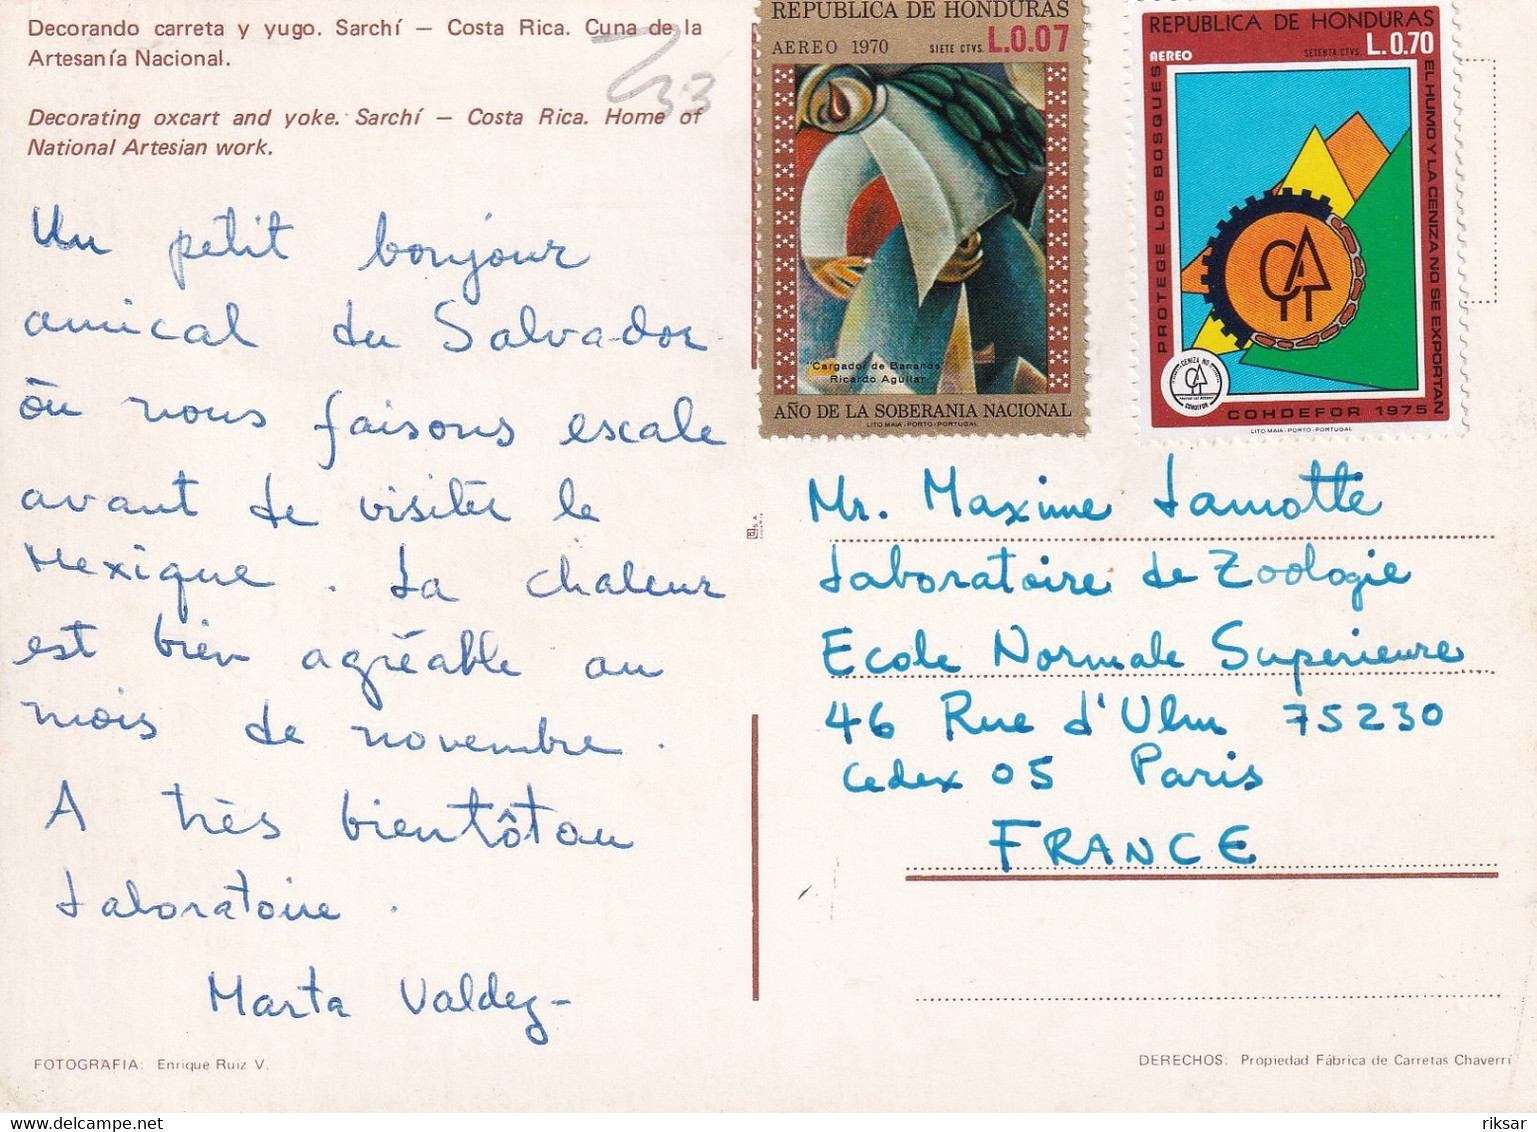 Decorando carreta y yugo. Sarchí — Costa Rica. Cuna de la
Artesanía Nacional.
Decorating oxcart and yoke. Sarchí — Costa Rica. Home of
National Artesian work.
33
Un petit bonjour
amical du Salvador
où nous faisons escale
avant de visiter le
Mexique. La chaleur
est bien agréable au
mois de novembre.
A très bientôt au
Laboratoire.
Marta Valdez-
FOTOGRAFIA: Enrique Ruiz V.
REPUBLICA DE HONDURAS
AEREO 1970 SIETE CTVS. L.0.07
"Cargador de Bananos"
Ricardo Aguilar
AÑO DE LA SOBERANIA NACIONAL
LITO MAIA - PORTO - PORTUGAL
REPUBLICA DE HONDURAS
AEREO SETENTA CTVS. L.0.70
PROTEGE LOS BOSQUES
EL HUMO Y LA CENIZA NO SE EXPORTAN
CENIZA NO
COHDEFOR
COHDEFOR 1975
LITO MAIA - PORTO - PORTUGAL
Mr. Maxime Lamotte
Laboratoire de Zoologie
Ecole Normale Supérieure
46 Rue d'Ulm 75230
Cedex 05 Paris
FRANCE
DERECHOS: Propiedad Fábrica de Carretas Chaverrí
riksar